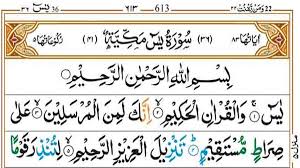 ومن يقنت ٢٢ 613 ٦١٣ يٰسٓ 36
اٰيَاتُهَا ٨٣ (٣٦) سُوْرَةُ يٰسٓ مَكِّيَّةٌ (٤١) رُكُوْعَاتُهَا ٥
بِسْمِ اللّٰهِ الرَّحْمٰنِ الرَّحِيْمِ
يٰسٓ ۝١ وَالْقُرْاٰنِ الْحَكِيْمِ ۝٢ اِنَّكَ لَمِنَ الْمُرْسَلِيْنَ ۝٣ عَلٰى
صِرَاطٍ مُّسْتَقِيْمٍ ۝٤ تَنْزِيْلَ الْعَزِيْزِ الرَّحِيْمِ ۝٥ لِتُنْذِرَ قَوْمًا